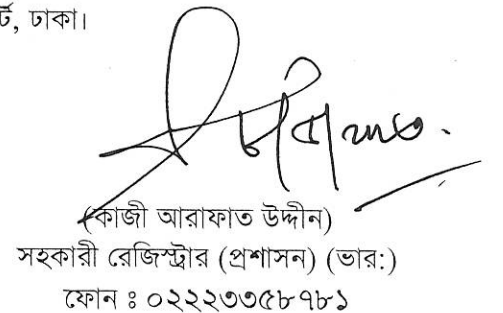 র্ট, ঢাকা।
(কাজী আরাফাত উদ্দীন)
সহকারী রেজিস্ট্রার (প্রশাসন) (ভার:)
ফোন ঃ ০২২২৩৩৫৮৭৮১